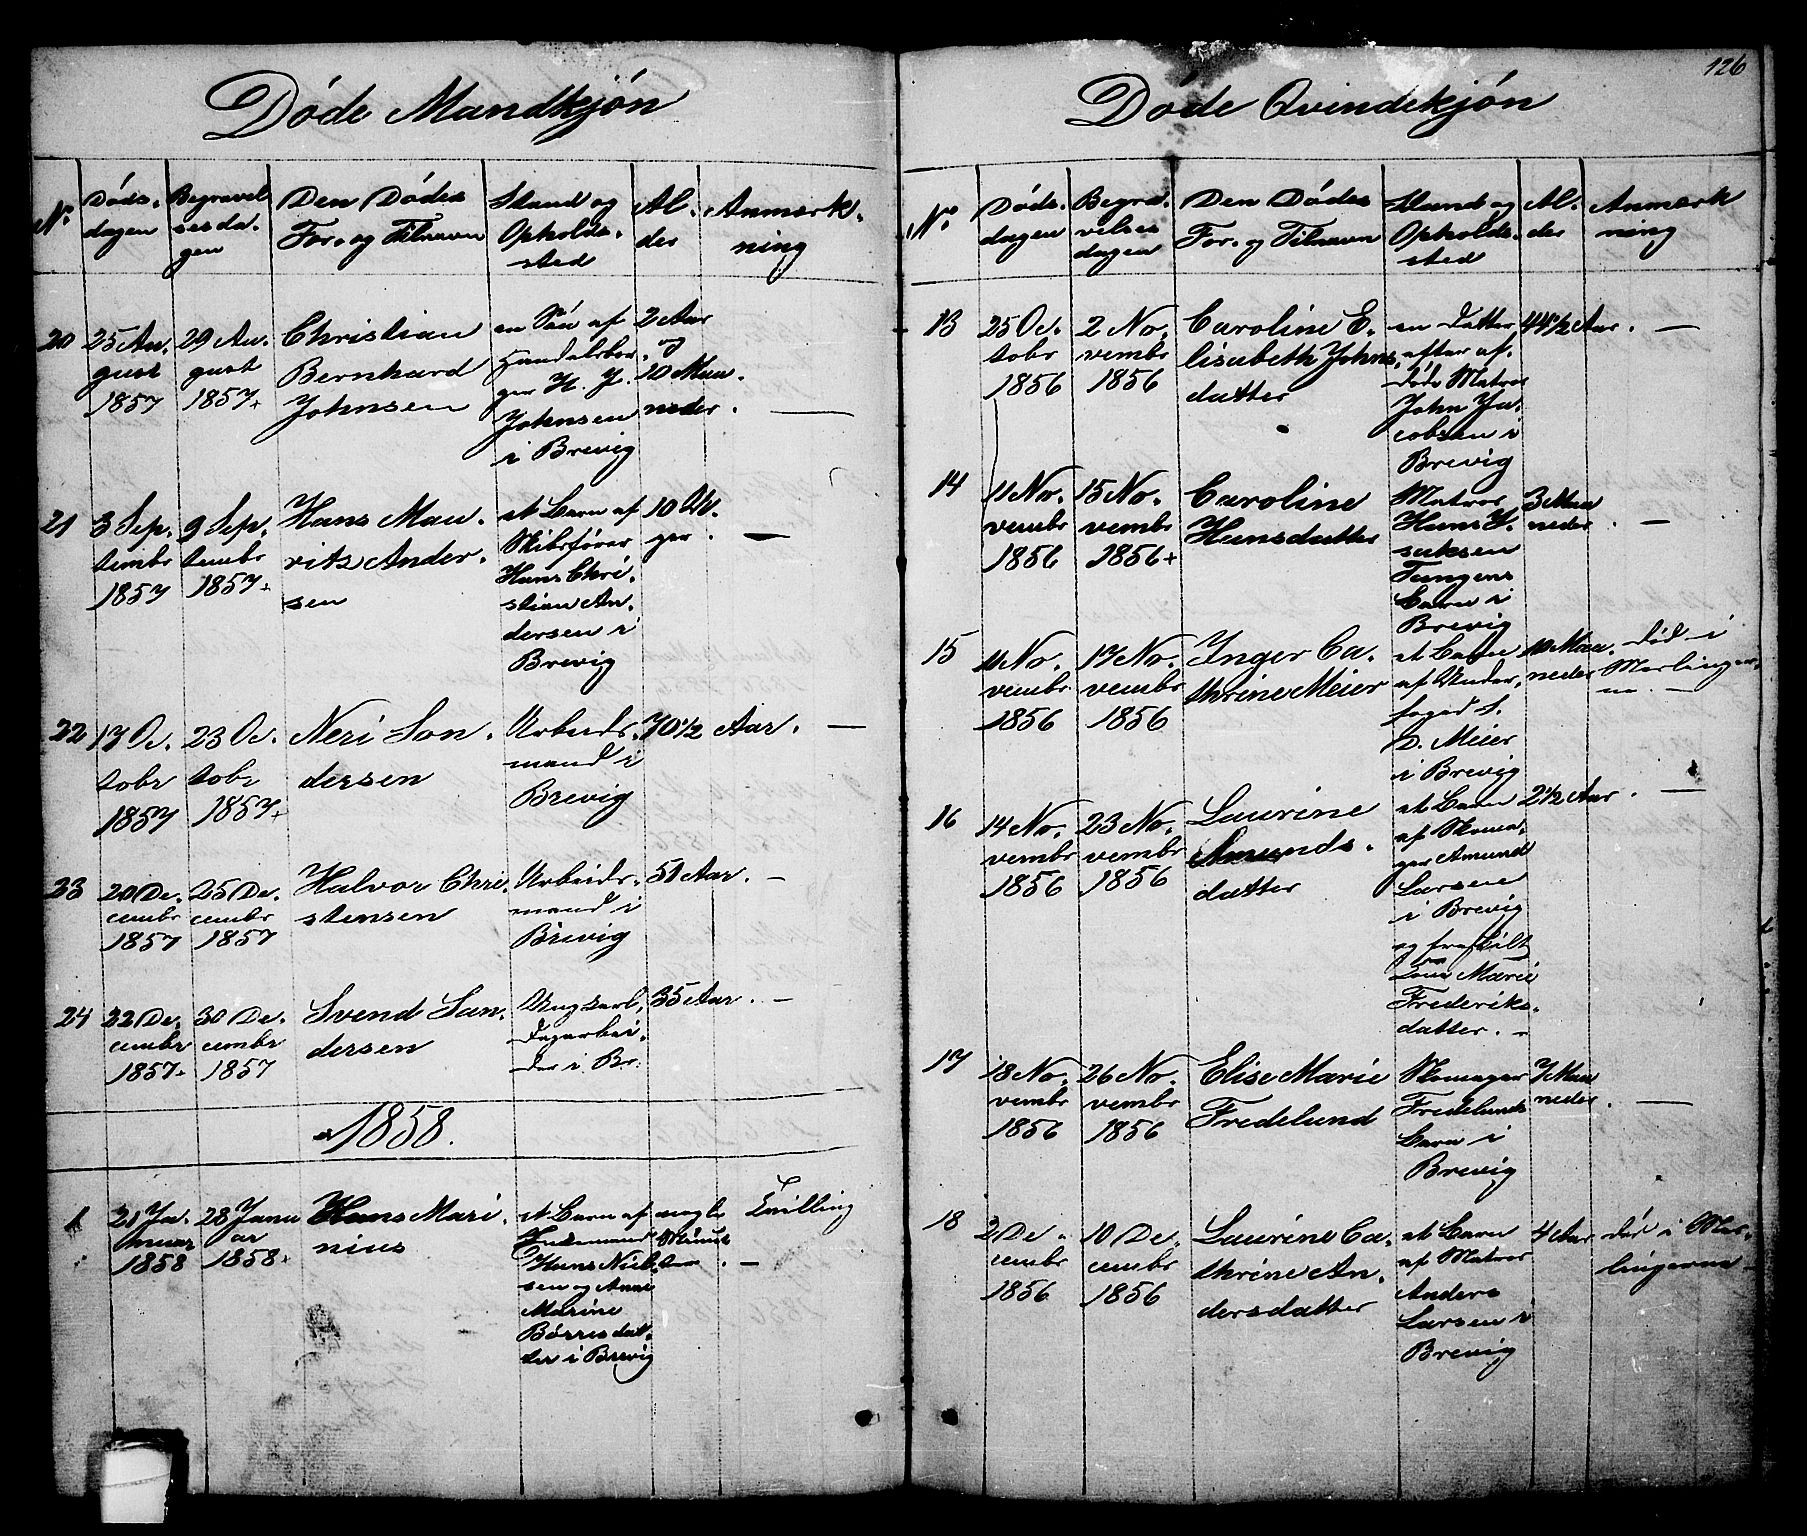 Døde Mandkjøn
No.
Døds-
dagen
Begravel
sesda-
gen
Den Dødes
For- og Tilnavn
Stand og
Opholds-
sted
Al-
der
Anmærk-
ning
20
25 Au-
gust
1857
29 Au-
gust
1857+
Christian
Bernhard
Johnsen
en Søn af
Handelsbor-
ger H. J.
Johnsen
i Brevig
2 Aar
og
10 Maa-
neder. —
21
3 Sep-
tembr
1857
9 Sep-
tembr
1857+
Hans Mau-
ritz Ander-
sen
et Barn af
Skibsfører
Hans Chri-
stian An-
dersen i
Brevig
10 U-
ger. —
22
17 Oc-
tobr
1857
23 Oc-
tobr
1857+
Neri Son-
dersen
Arbeids-
mand i
Brevig
70 1/2 Aar. —
23
20 De-
cembr
1857
25 De-
cembr
1857
Halvor Chri-
stensen
Arbeids-
mand i
Brevig
51 Aar. —
24
22 De-
cembr
1857.
30 De-
cembr
1857
Svend San-
dersen
Ungkarl,
Dagarbei-
der i Br.
35 Aar. —
1858.
1
21 Ja-
nuar
1858
28 Janu
ar
1858+
Hans Mari-
nius
et Barn af
Hans Niel-
sen og Anne
Marine
Børresdat-
ter i Brevig
nogle
Minut-
ter. —
Tvilling
126
Døde Qvindekjøn
No.
Døds-
dagen
Begra-
velses
dagen
Den Dødes
For- og Tilnavn
Stand og
Opholds-
sted
Al-
der
Anmærk
ning
13
25 Oc-
tobr
1856
2 No-
vembr
1856
Caroline E-
lisabeth Johns-
datter
en Datter
efter af-
døde Matros
John Ja-
cobsen i
Brevig
44 1/2 Aar. —
14
11 No-
vembr
1856
15 No-
vembr
1856+
Caroline
Hansdatter
Matros
Hans I-
saksen
Tangens
Barn i
Brevig
3 Maa
neder. —
15
11 No-
vembr
1856
17 No-
vembr
1856
Inger Ca-
thrine Meier
et Barn
af Under-
foged S.
D. Meier
i Brevig
10 Maa-
neder
død i
Meslinger-
ne. —
16
14 No-
vembr
1856
23 No-
vembr
1856
Laurine
Amunds-
datter
et Barn
af Skoma-
ger Amund
Larsen
i Brevig
og fraskilt
Kone Marie
Frederiks-
datter. —
2 1/2 Aar. —
17
18 No-
vembr
1856
26 No-
vembr
1856
Elise Marie
Fredelund
Skomager
Fredelunds
Barn i
Brevig
7 Maa
neder. —
18
2 De-
cembr
1856
10 De-
cembr
1856
Laurine Ca-
thrine An-
dersdatter
et Barn
af Matros
Anders
Larsen i
Brevig
4 Aar
død i Mes-
lingerne —